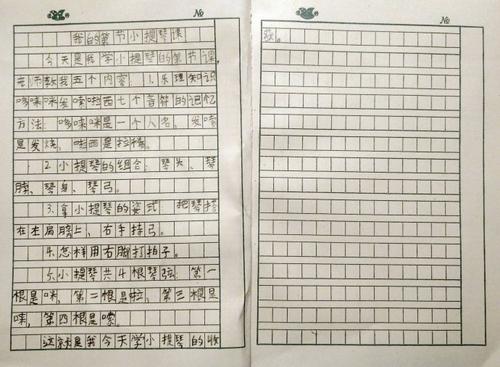 No
我的第节小提琴课
今天是我学小提琴的第节课,
老师教我五个内容 1.乐理知识
哆唻咪发嗦啦西七个音符的记忆
方法: 哆唻咪是一个人名。发嗦
是发烧。啦西是拉稀。
2.小提琴的组合: 琴头、琴
脖、琴身、琴弓。
3.拿小提琴的姿式 把琴搭
在左肩膀上, 右手持弓。
4.怎样用右脚打拍子。
5.小提琴共4根琴弦, 第一
根是咪, 第二根是拉, 第三根是
唻, 第四根是嗦。
这就是我今天学小提琴的收
No
获。